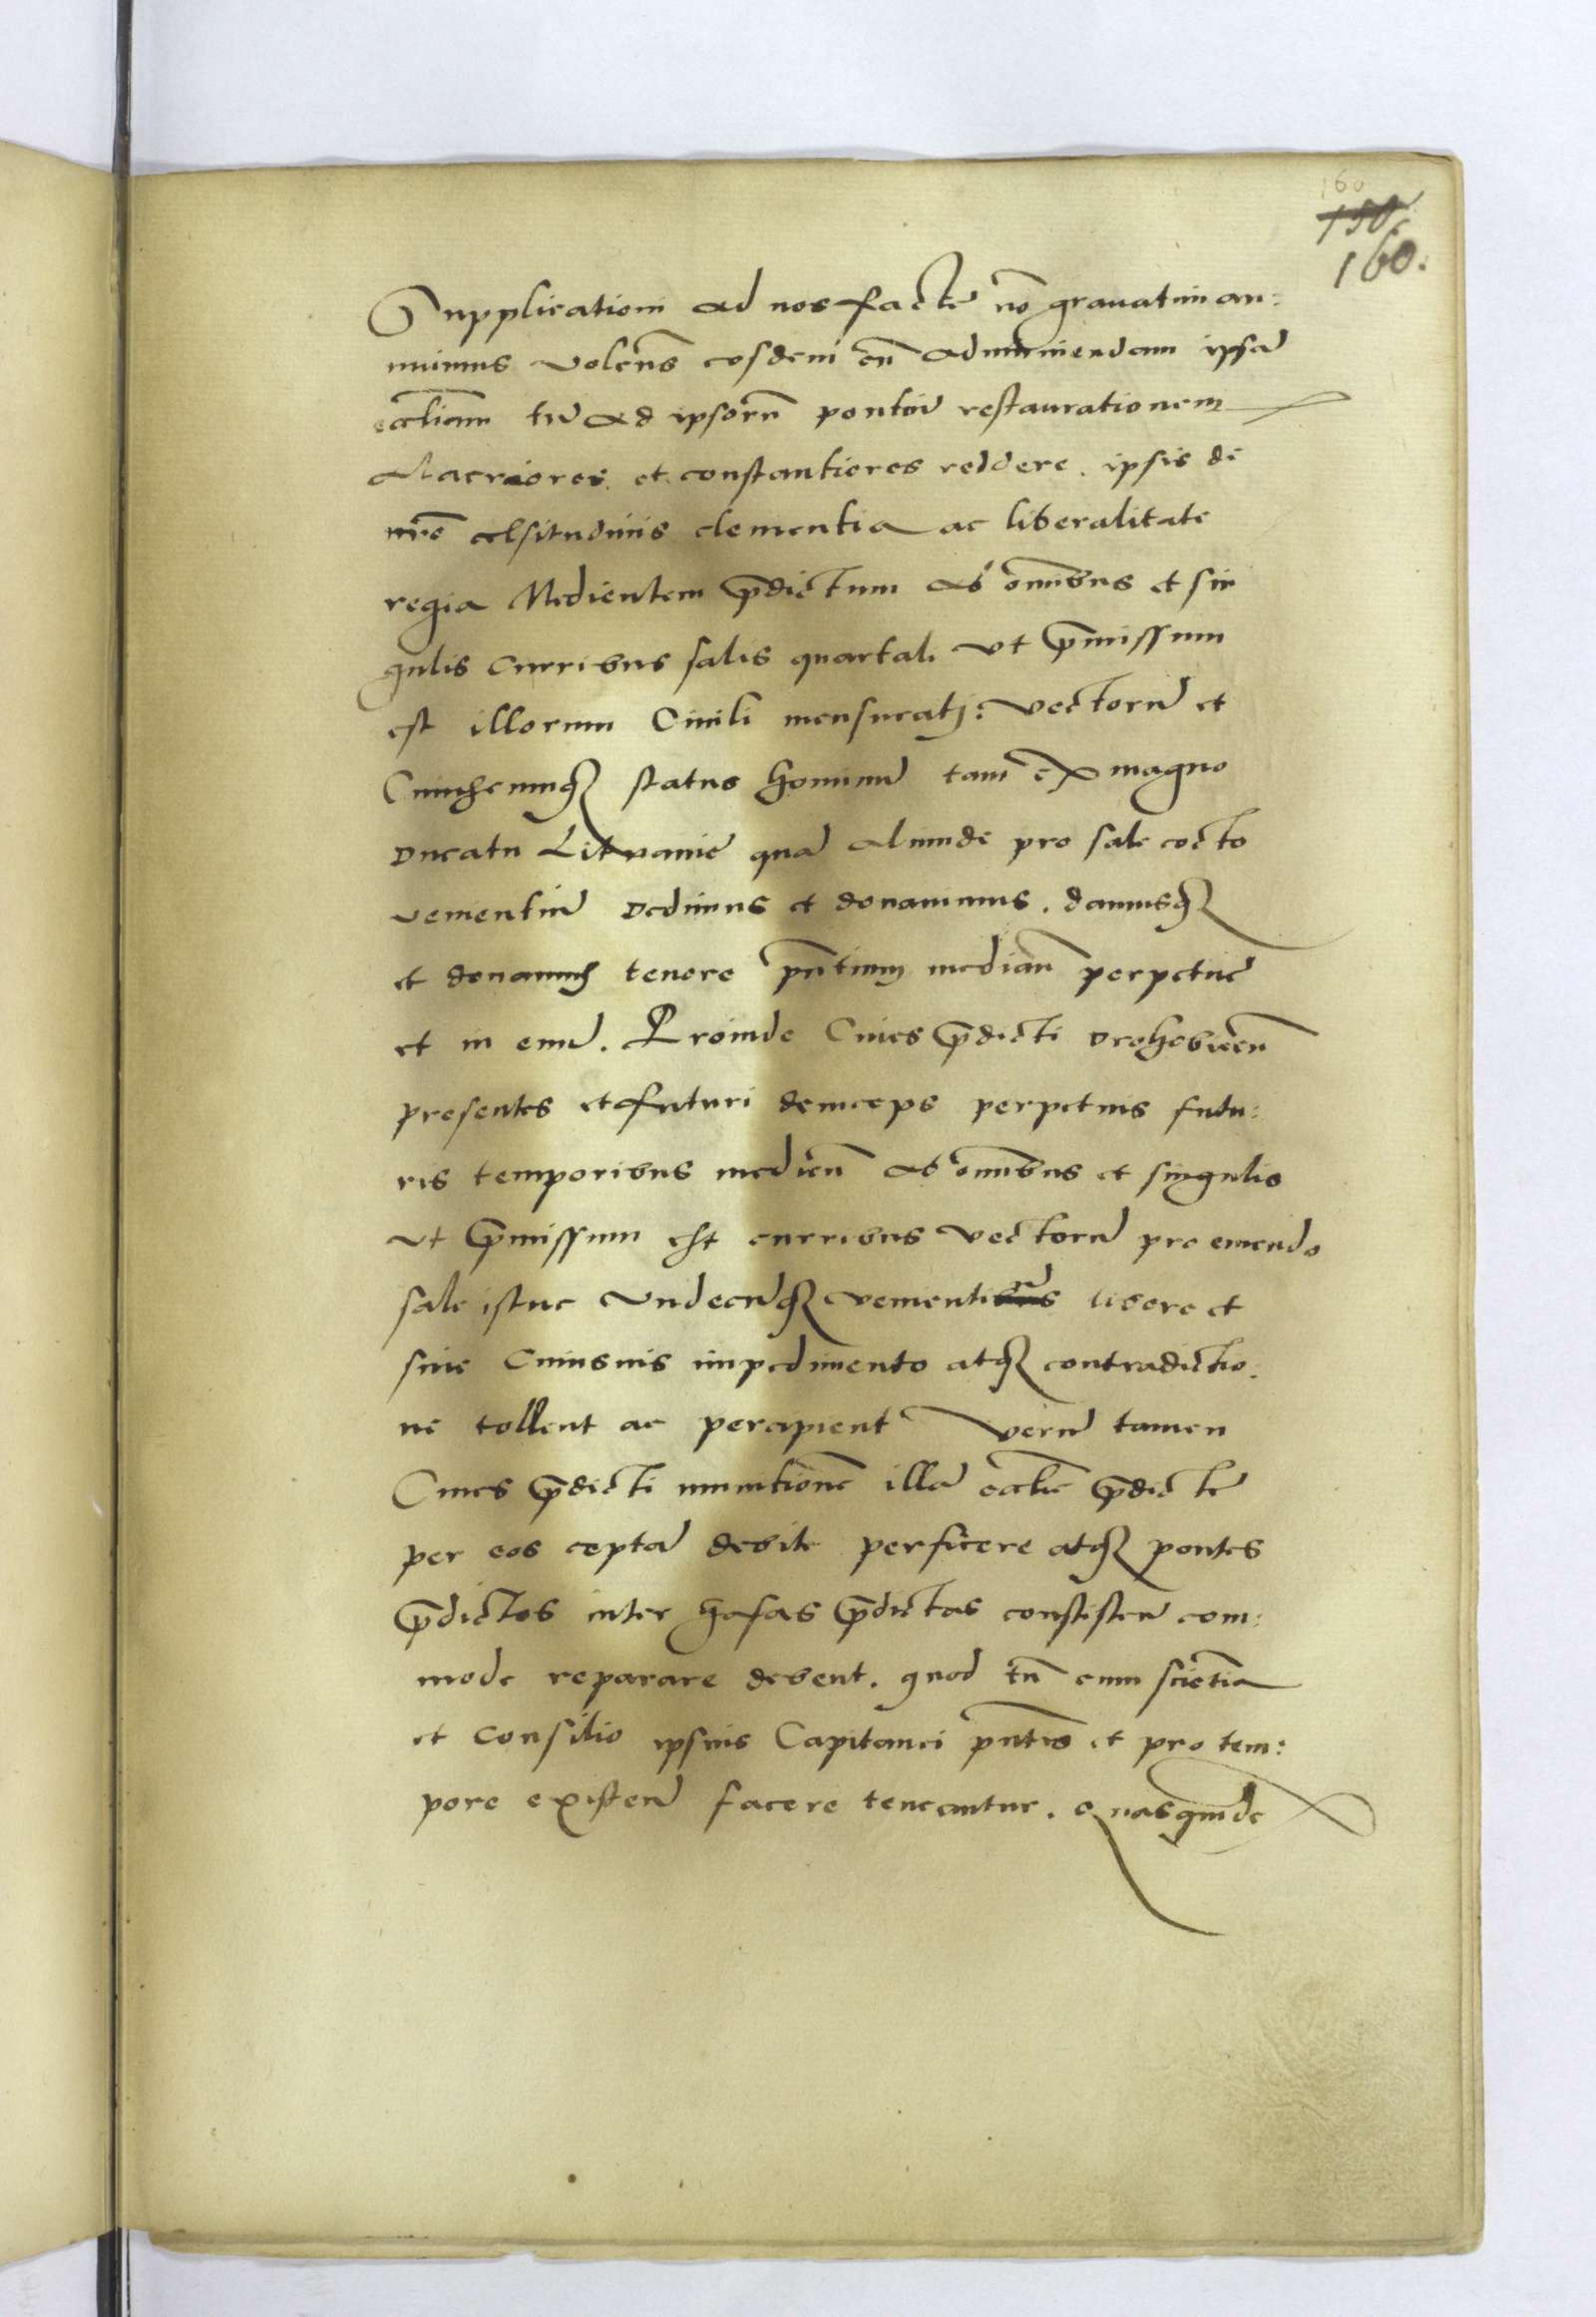 160
150
160.
Supplicationi ad nos facte nō gravatim an:
nuimus volens eosdem cū ad muniendam ipsā
eccliam tū ad ipsorū pontiū restaurationem
Alacriores et constantiores reddere. ipsis de
nrē celsitudinis clementia ac liberalitate
regia Medientem p̄dictum ab omībus et sin
gulis curribus salis quartali vt p̄missum
est illorum Civili mensurati: vectorū et
Cuiuscunqꝫ status hominū tam ex magno
Ducatu Litvanie quā aliunde pro sale cocto
venientiū Dedimus et donavimus. damusqꝫ
et donamus tenore pn̄tium median̄ perpetue
et in evū. Proinde Cives p̄dicti Drohobicen̄
presentes et futuri deinceps perpetuis futu:
ris temporibus medien̄ ab omībus et singulis
vt p̄missum est curribus vectorū pro emendo
sale istuc vndecūqꝫ venientiū libere et
sine Cuiusvis impedimento atqꝫ contradictio:
ne tollent ac percipient verū tamen
Cives p̄dicti munitionē illā ecclie p̄dicte
per eos ceptā debite perficere atqꝫ pontes
p̄dictos inter hasas p̄dictas consisten̄ com:
mode reparare debent. quod tn̄ cum scientia
et consilio ipsius Capitanei pn̄tis et pro tem:
pore existen̄ facere teneantur. quasquidē